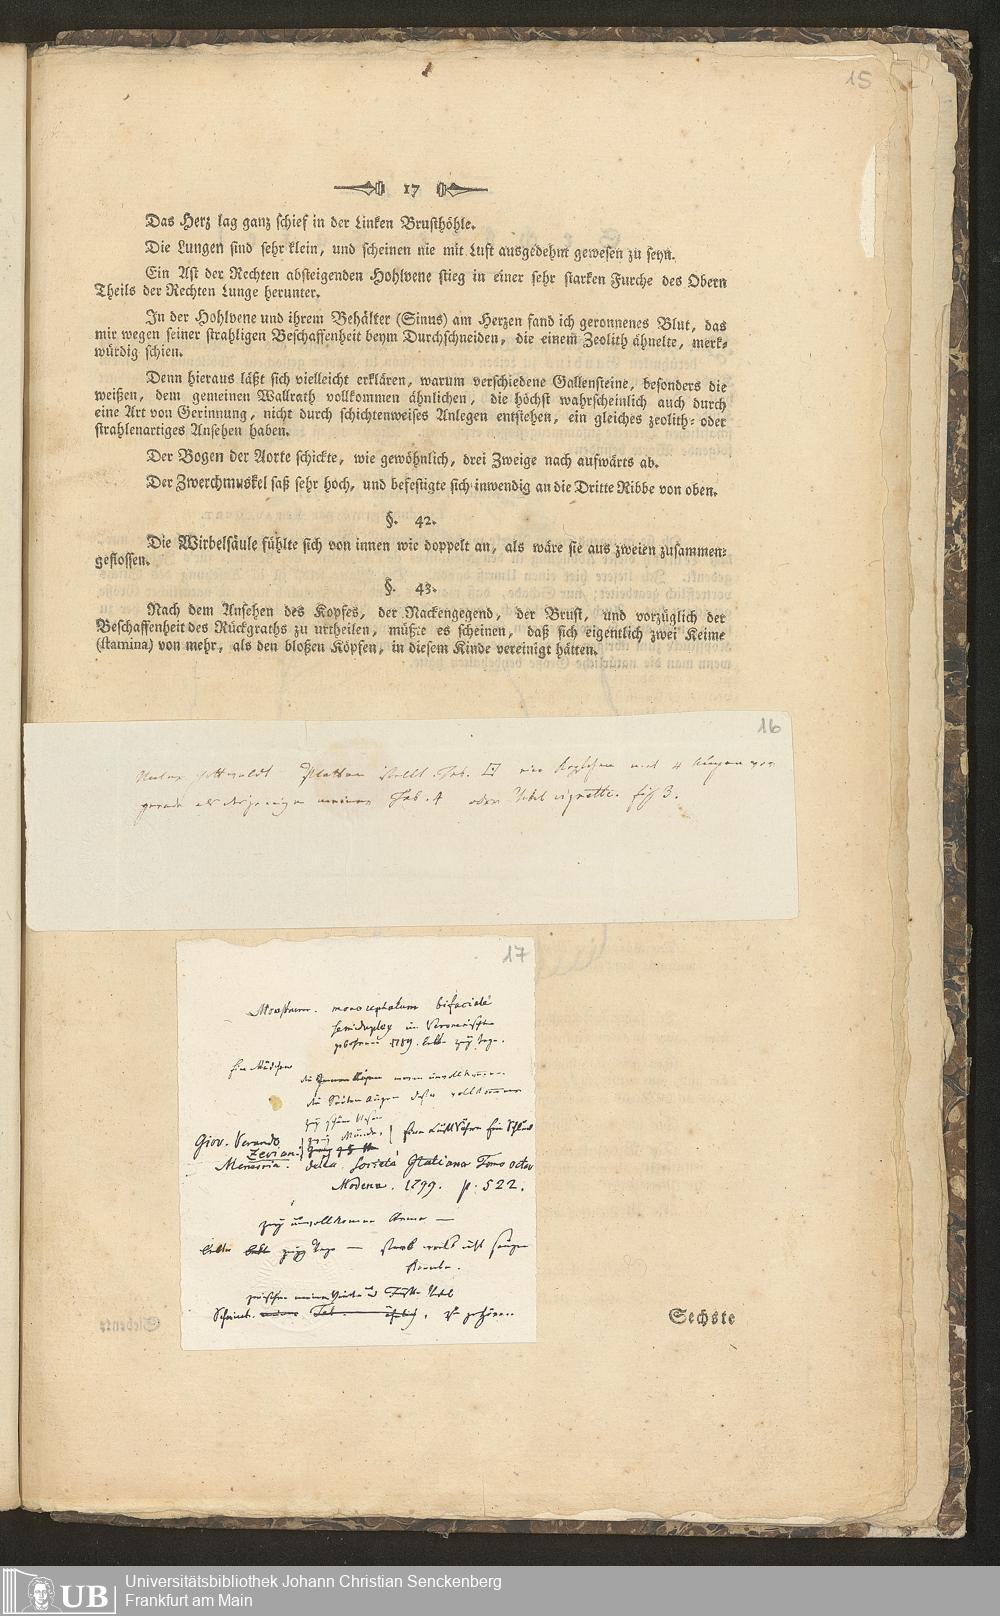 15
17
Das Herz lag ganz schief in der Linken Brusthöhle.
Die Lungen sind sehr klein, und scheinen nie mit Luft ausgedehnt gewesen zu seyn.
Ein Ast der Rechten absteigenden Hohlvene stieg in einer sehr starken Furche des Obern
Theils der Rechten Lunge herunter.
In der Hohlvene und ihrem Behälter (Sinus) am Herzen fand ich geronnenes Blut, das
mir wegen seiner strahligen Beschaffenheit beym Durchschneiden, die einem Zeolith ähnelte, merk-
würdig schien.
Denn hieraus läßt sich vielleicht erklären, warum verschiedene Gallensteine, besonders die
weißen, dem gemeinen Wallrath vollkommen ähnlichen, die höchst wahrscheinlich auch durch
eine Art von Gerinnung, nicht durch schichtenweises Anlegen entstehen, ein gleiches zeolith- oder
strahlenartiges Ansehen haben.
Der Bogen der Aorte schickte, wie gewöhnlich, drei Zweige nach aufwärts ab.
Der Zwerchmuskel saß sehr hoch, und befestigte sich inwendig an die Dritte Ribbe von oben.
§. 42.
Die Wirbelsäule fühlte sich von innen wie doppelt an, als wäre sie aus zweien zusammen-
geflossen.
§. 43.
Nach dem Ansehen des Kopfes, der Nackengegend, der Brust, und vorzüglich der
Beschaffenheit des Rückgraths zu urtheilen, müßte es scheinen, daß sich eigentlich zwei Keime
(stamina) von mehr, als den bloßen Köpfen, in diesem Kinde vereinigt hätten.
16
Tab. mit 4 Augen
gerade Tab. 4 oder Titelvignette. fig 3.
17
Monstrum. monocephalum bifaciale
semiduplex im Veronesischen
gebohren 1789. lebte Tage.
Ein Mädchen
waren unvollkommen
die Augen vollkommen
Giov. Verardo
Zeviani
Memoria. della Società Italiana Tomo octav
Modena. 1799. p. 522.
unvollkommene Arme —
lebte Tage — starb weil es nicht saugen
konnte.
Scheint zu gehören.
Sechste
Universitätsbibliothek Johann Christian Senckenberg
UB Frankfurt am Main